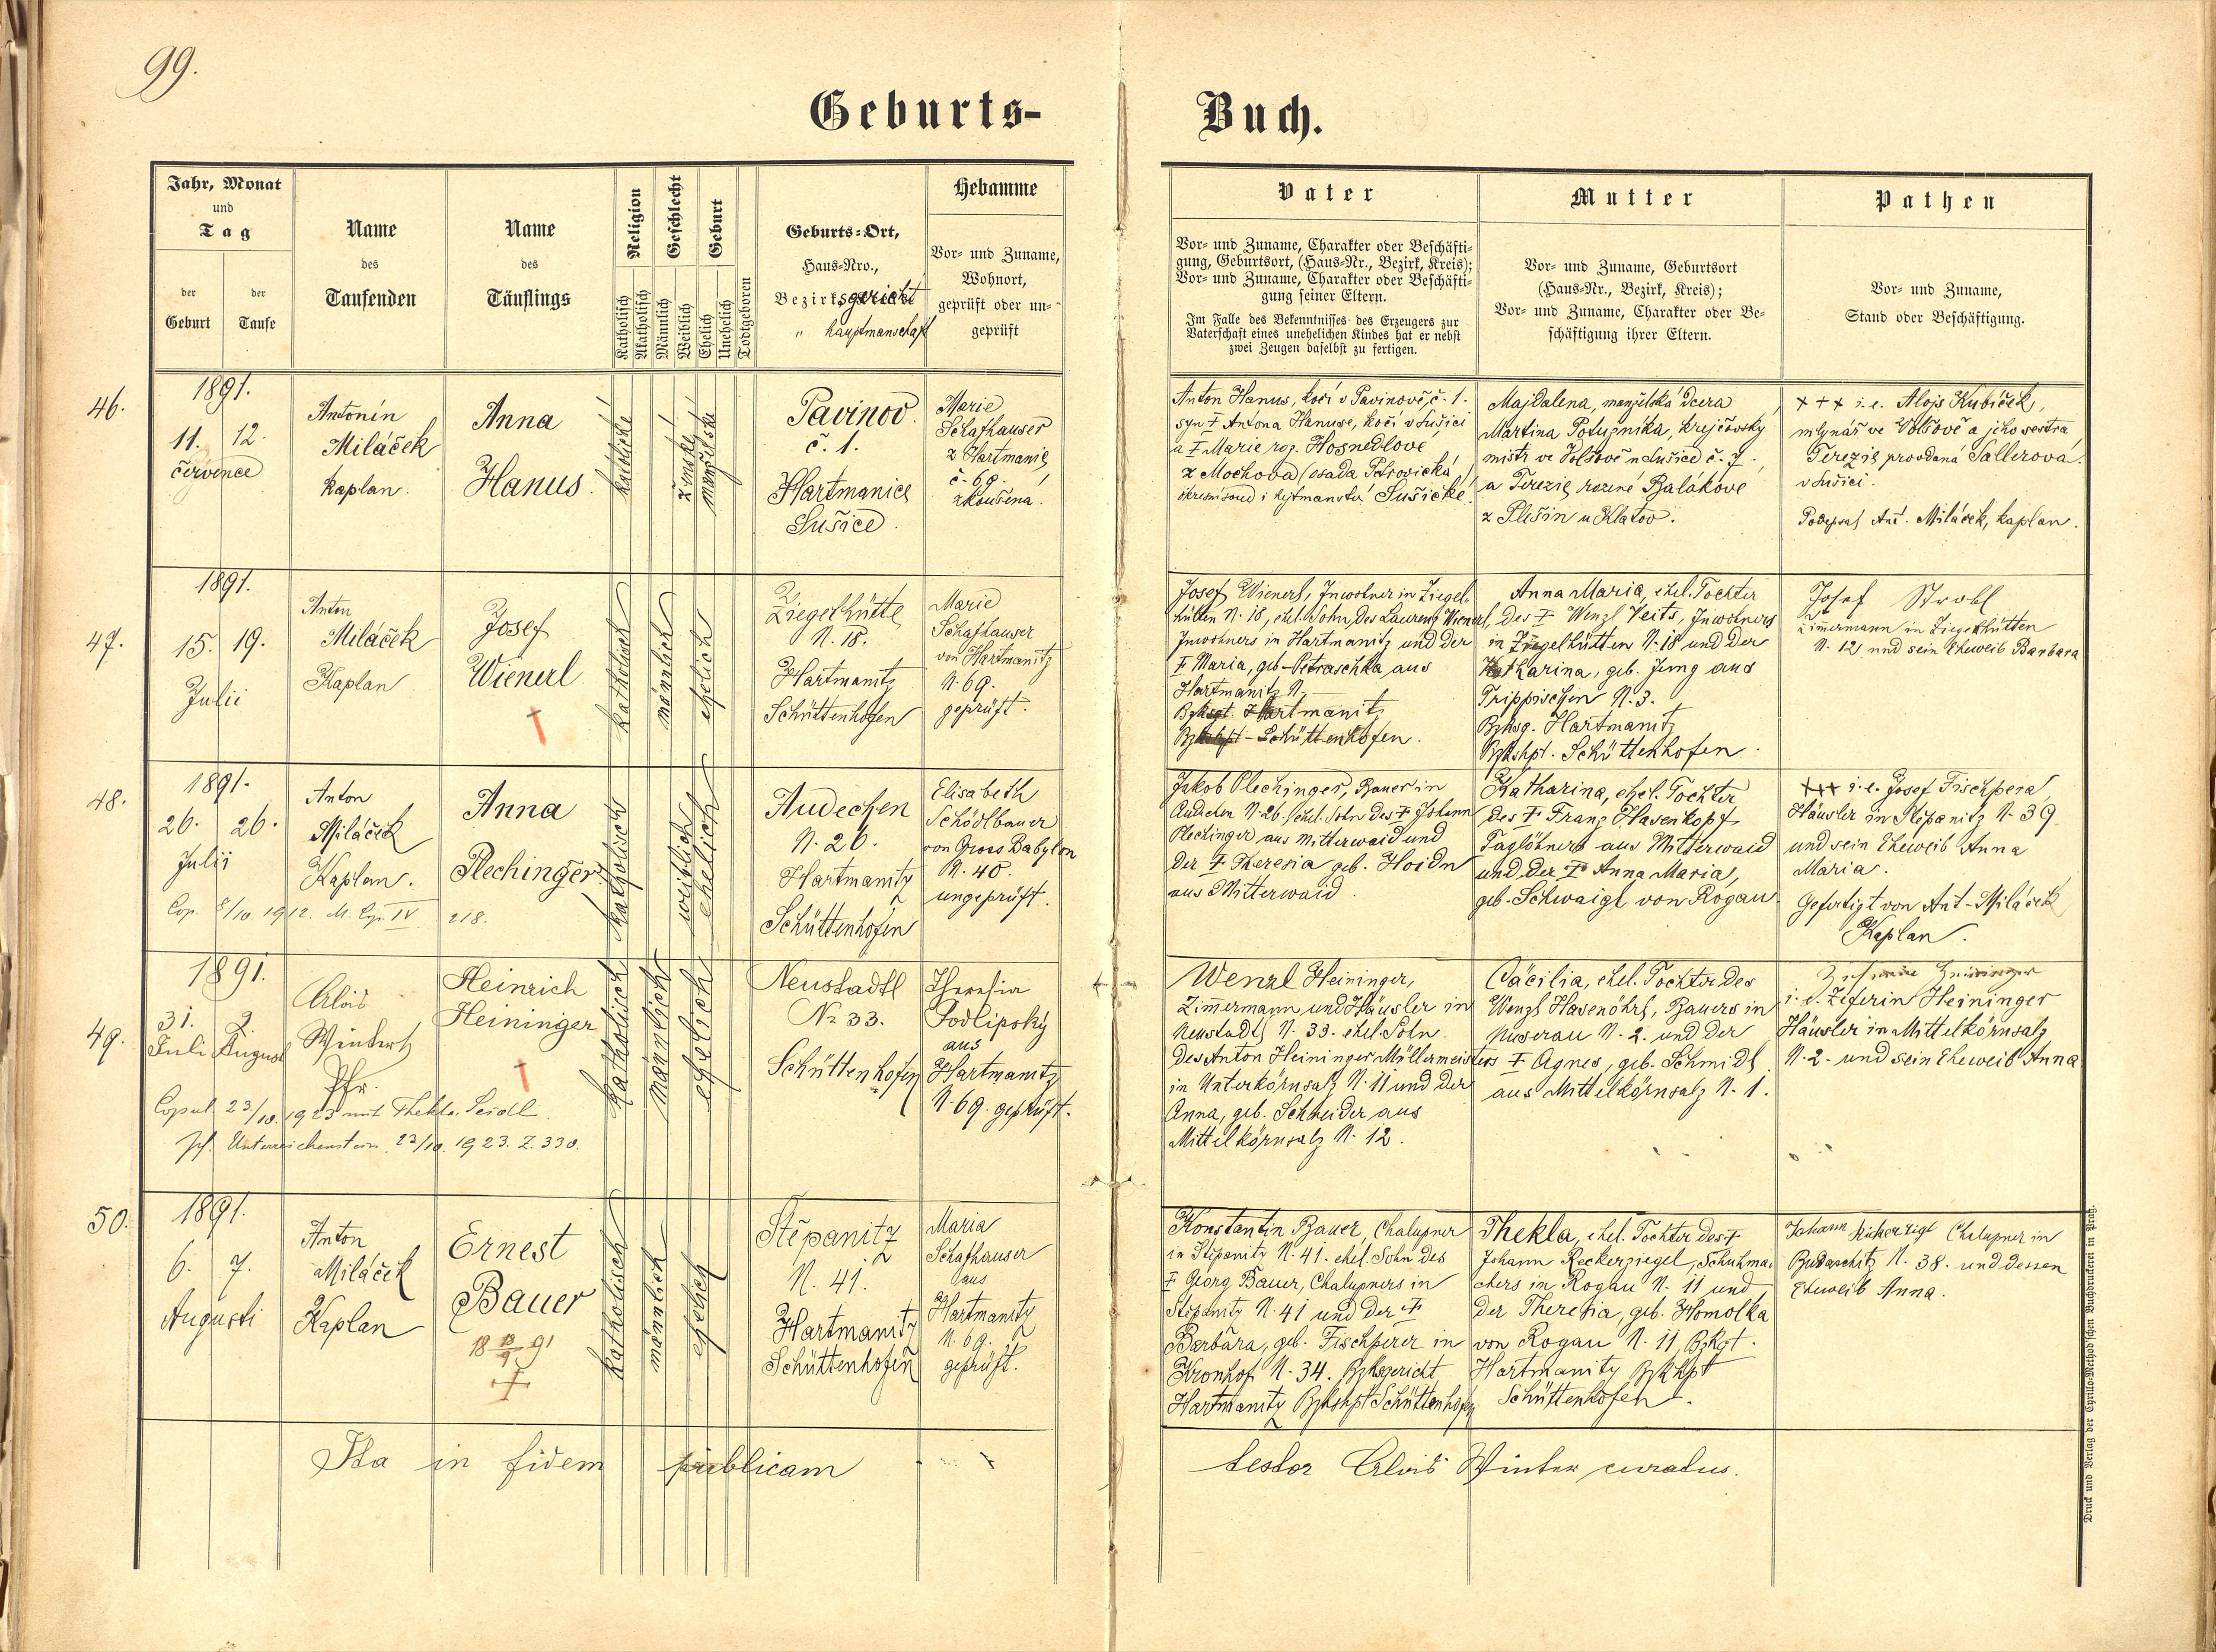 99.
Geburts-
Buch.
Jahr, Monat
und
Tag
der
Geburt
der
Taufe
Name
des
Taufenden
Name
des
Täuflings
Religion
Katholisch
Akatholisch
Geschlecht
Männlich
Weiblich
Geburt
Ehelich
Unehelich
Todtgeboren
Geburts-Ort,
Haus-Nro.,
Bezirksgericht
" hauptmanschaft
Hebamme
Vor- und Zuname,
Wohnort,
geprüft oder un-
geprüft
Vater
Vor- und Zuname, Charakter oder Beschäfti-
gung, Geburtsort, (Haus-Nr., Bezirk, Kreis);
Vor- und Zuname, Charakter oder Beschäfti-
gung seiner Eltern.
Im Falle des Bekenntnisses des Erzeugers zur
Vaterschaft eines unehelichen Kindes hat er nebst
zwei Zeugen daselbst zu fertigen.
Mutter
Vor- und Zuname, Geburtsort
(Haus-Nr., Bezirk, Kreis);
Vor- und Zuname, Charakter oder Be-
schäftigung ihrer Eltern.
Pathen
Vor- und Zuname,
Stand oder Beschäftigung.
46.
1891.
11. 12.
července
Antonín
Miláček
kaplan.
Anna
Hanus.
katolické
ženské
manželské
Pavinov
č. 1.
Hartmanice
Sušice.
Marie
Schafhauser
z Hartmanic
č. 69.
zkoušena.
Anton Hanus, kočí v Pavinově, č. 1.
syn † Antona Hanuse, kočí v Sušici
a † Marie roz. Hosnedlové
z Mochova (osada Petrovická)
okresní soud i hejtmanství Sušické.
Majdalena, manželská dcera
Martina Potužníka, krejčovský
mistr ve Volšově u Sušice č. 7.
a Terezie rozené Balákové
z Plešin u Klatov.
+++ i.e. Alojs Kubíček,
mlynář ve Volšově a jeho sestra
Terezie provdaná Sallerova
v Sušici.
Podepsal Ant. Miláček, kaplan.
47.
1891.
15. 19.
Julii
Anton
Miláček
Kaplan
Josef
Wienerl
†
katholisch
männlich
ehelich
Ziegelhütte
N. 18.
Hartmanitz
Schüttenhofen
Marie
Schafhauser
von Hartmanitz
N. 69.
geprüft.
Josef Wienerl, Inwohner in Ziegel-
hütten N. 18, ehel. Sohn des Laurenz Wienerl,
Inwohners in Hartmanitz und der
† Maria, geb. Petraschka aus
Hartmanitz N.
Bzksgt. Hartmanitz
Bzkshpt - Schüttenhofen.
Anna Maria, ehel. Tochter
des † Wenzl Veits, Inwohners
in Ziegelhütten N. 18 und der
Katharina, geb. Jung aus
Trippischen N. 3.
Bzksg. Hartmanitz
Bzkshpt. Schüttenhofen.
Josef Strobl
Zimmermann in Ziegelhütten
N. 12, und sein Eheweib Barbara
48.
1891.
26. 26.
Julii
Anton
Miláček
Kaplan.
Anna
Plechinger
Cop. 8/10 1912. M. Exp. IV 218.
katholisch
weiblich
ehelich
Audechen
N. 26
Hartmanitz
Schüttenhofen
Elisabeth
Schödlbauer
von Gross Babylon
N. 40.
ungeprüft.
Jakob Plechinger, Bauer in
Audechen N. 26. ehel. Sohn des † Johann
Plechinger aus Mitterwaid und
der † Theresia geb. Hoidn
aus Mitterwaid.
Katharina, ehel. Tochter
des † Franz Hasenkopf
Taglöhners aus Mitterwaid
und der † Anna Maria,
geb. Schwaigl von Rogau
+++ i.e. Josef Fischpera,
Häusler in Stepanitz N. 39
und sein Eheweib Anna
Maria.
Gefertigt von Ant. Miláček
Kaplan.
49.
1891.
31. 2.
Juli August
Alois
Winter
Pfr.
Heinrich
Heininger
†
Copul. 23/10. 1923 mit Thekla Seidl
Pf. Unterreichenstein 23/10. 1923. Z. 330.
katholisch
männlich
ehelich
Neustadtl
No 33.
Schüttenhofen
Theresia
Podlipský
aus
Hartmanitz
N. 69. geprüft.
Wenzl Heininger,
Zimmermann und Häusler in
Neustadtl N. 33. ehel. Sohn
des Anton Heininger Müllermeisters
in Unterkörnsalz N. 11 und der
Anna, geb. Schneider aus
Mittelkörnsalz N. 12.
Cäcilia, ehel. Tochter des
Wenzl Hasenöhrl, Bauers in
Puserau N. 2. und der
† Agnes, geb. Schmidt
aus Mittelkörnsalz N. 1.
i. e. Zeferin Heininger
Häusler in Mittelkörnsalz
N. 2. und sein Eheweib Anna
50.
1891.
6. 7.
Augusti
Anton
Miláček
Kaplan
Ernest
Bauer
18 18/9 91
†
katholisch
männlich
ehelich
Štěpanitz
N. 41.
Hartmanitz
Schüttenhofen
Maria
Schafhauser
aus
Hartmanitz
N. 69.
geprüft.
Konstantin Bauer, Chalupner
in Stěpanitz N. 41. ehel. Sohn des
† Georg Bauer, Chalupners in
Stepanitz N. 41 und der †
Barbara, geb. Fischperer in
Kronhof N. 34. Bzksgericht
Hartmanitz Bzkshpt Schüttenhofen
Thekla, ehel. Tochter des †
Johann Reckerziegel, Schuhma-
chers in Rogau N. 11 und
der Theresia, geb. Homolka
von Rogau N. 11, Bzkgt.
Hartmanitz Bzkhpt
Schüttenhofen.
Johann Chalupner in
Budaschitz N. 38. und dessen
Eheweib Anna.
Ita in fidem publicam
testor Alois Winter curatus.
Druck und Verlag der Cyrillo-Method'schen Buchdruckerei in Prag.